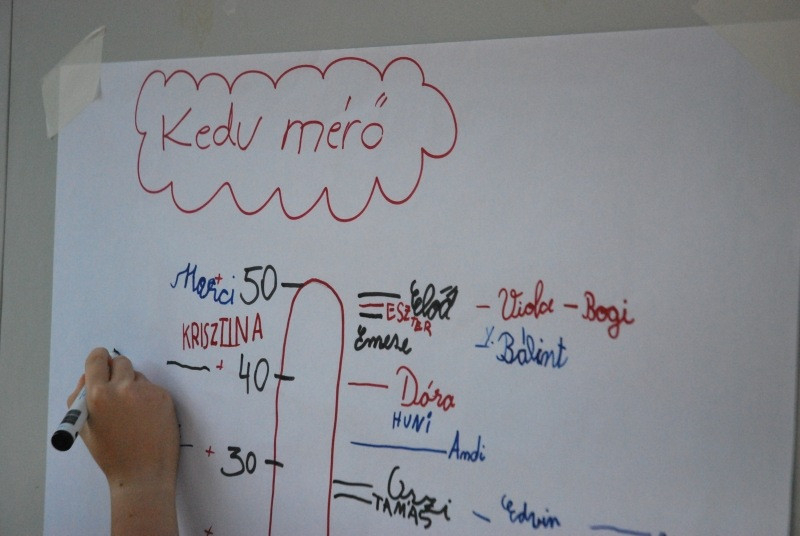 Kedv mérő
Marci + 50 Előd - Viola - Bogi
ESZTER
KRISZTINA Emese Bálint
+ 40 Dóra
HUNI
Andi
+ 30
Oszi
TAMÁS Edvin
+